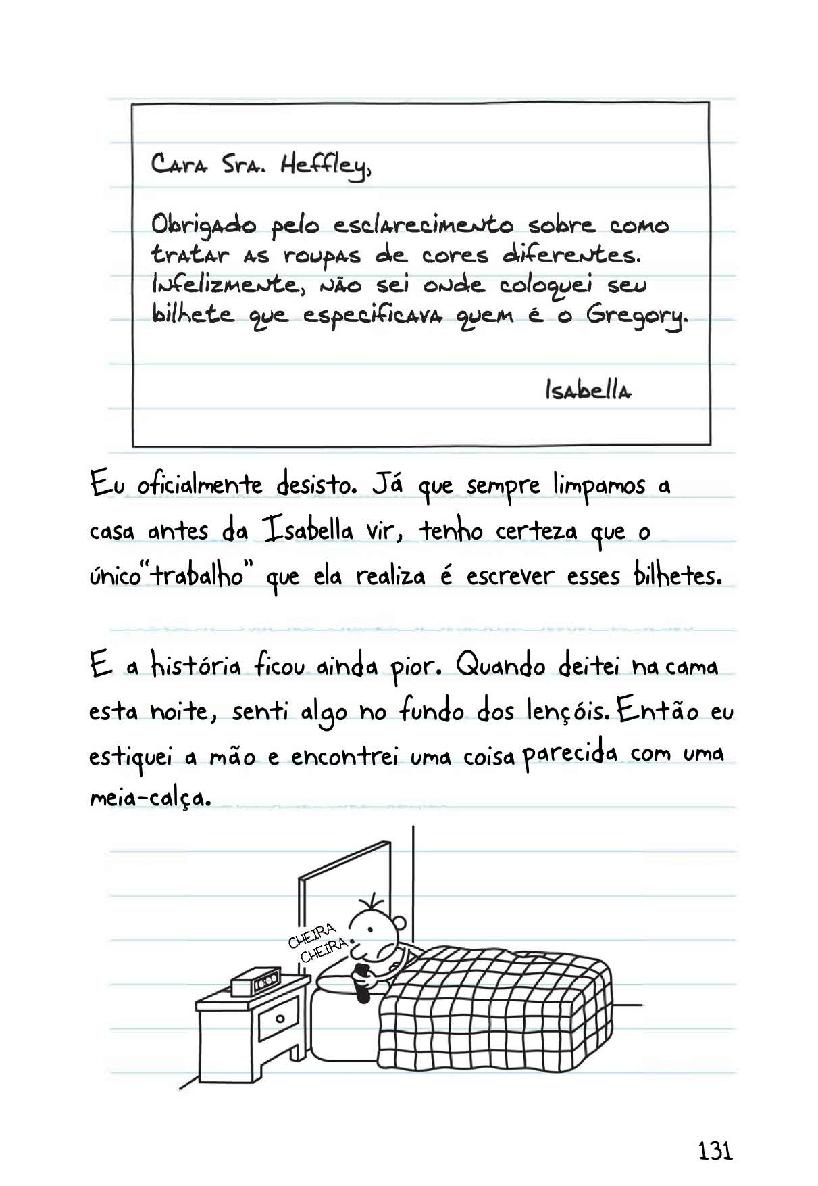 Cara Sra. Heffley,
Obrigado pelo esclarecimento sobre como
tratar as roupas de cores diferentes.
Infelizmente, não sei onde coloquei seu
bilhete que especificava quem é o Gregory.
Isabella
Eu oficialmente desisto. Já que sempre limpamos a
casa antes da Isabella vir, tenho certeza que o
único "trabalho" que ela realiza é escrever esses bilhetes.
E a história ficou ainda pior. Quando deitei na cama
esta noite, senti algo no fundo dos lençóis. Então eu
estiquei a mão e encontrei uma coisa parecida com uma
meia-calça.
CHEIRA
CHEIRA
131